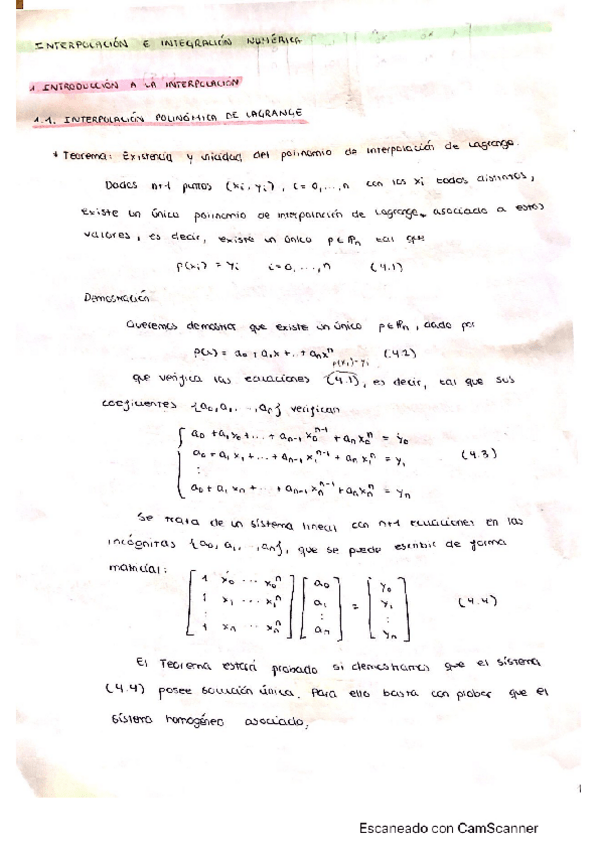 INTERPOLACIÓN E INTEGRACIÓN NUMÉRICA
1. INTRODUCCIÓN A LA INTERPOLACIÓN
1.1. INTERPOLACIÓN POLINÓMICA DE LAGRANGE
* Teorema: Existencia y unicidad del polinomio de interpolación de Lagrange.
Dados n+1 puntos (xi, yi), i=0,...,n con los xi todos distintos,
existe un único polinomio de interpolación de Lagrange, asociado a estos
valores, es decir, existe un único p∈Pn tal que
p(xi) = yi i=0,...,n (4.1)
Demostración
Queremos demostrar que existe un único p∈Pn, dado por
p(x) = a0 + a1x + ... + anx^n (4.2)
p(xi)=yi
que verifica las ecuaciones (4.1), es decir, tal que sus
coeficientes {a0, a1, ..., an} verifican
a0 + a1x0 + ... + an-1 x0^n-1 + an x0^n = y0
a0 + a1x1 + ... + an-1 x1^n-1 + an x1^n = y1 (4.3)
⋮
a0 + a1xn + ... + an-1 xn^n-1 + an xn^n = yn
Se trata de un sistema lineal con n+1 ecuaciones en las
incógnitas {a0, a1, ..., an}, que se puede escribir de forma
matricial:
[1 x0 ... x0^n] [a0] [y0]
[1 x1 ... x1^n] [a1] = [y1] (4.4)
⋮ ⋮ ⋮
[1 xn ... xn^n] [an] [yn]
El Teorema estará probado si demostramos que el sistema
(4.4) posee solución única. Para ello basta con probar que el
sistema homogéneo asociado,
1
Escaneado con CamScanner